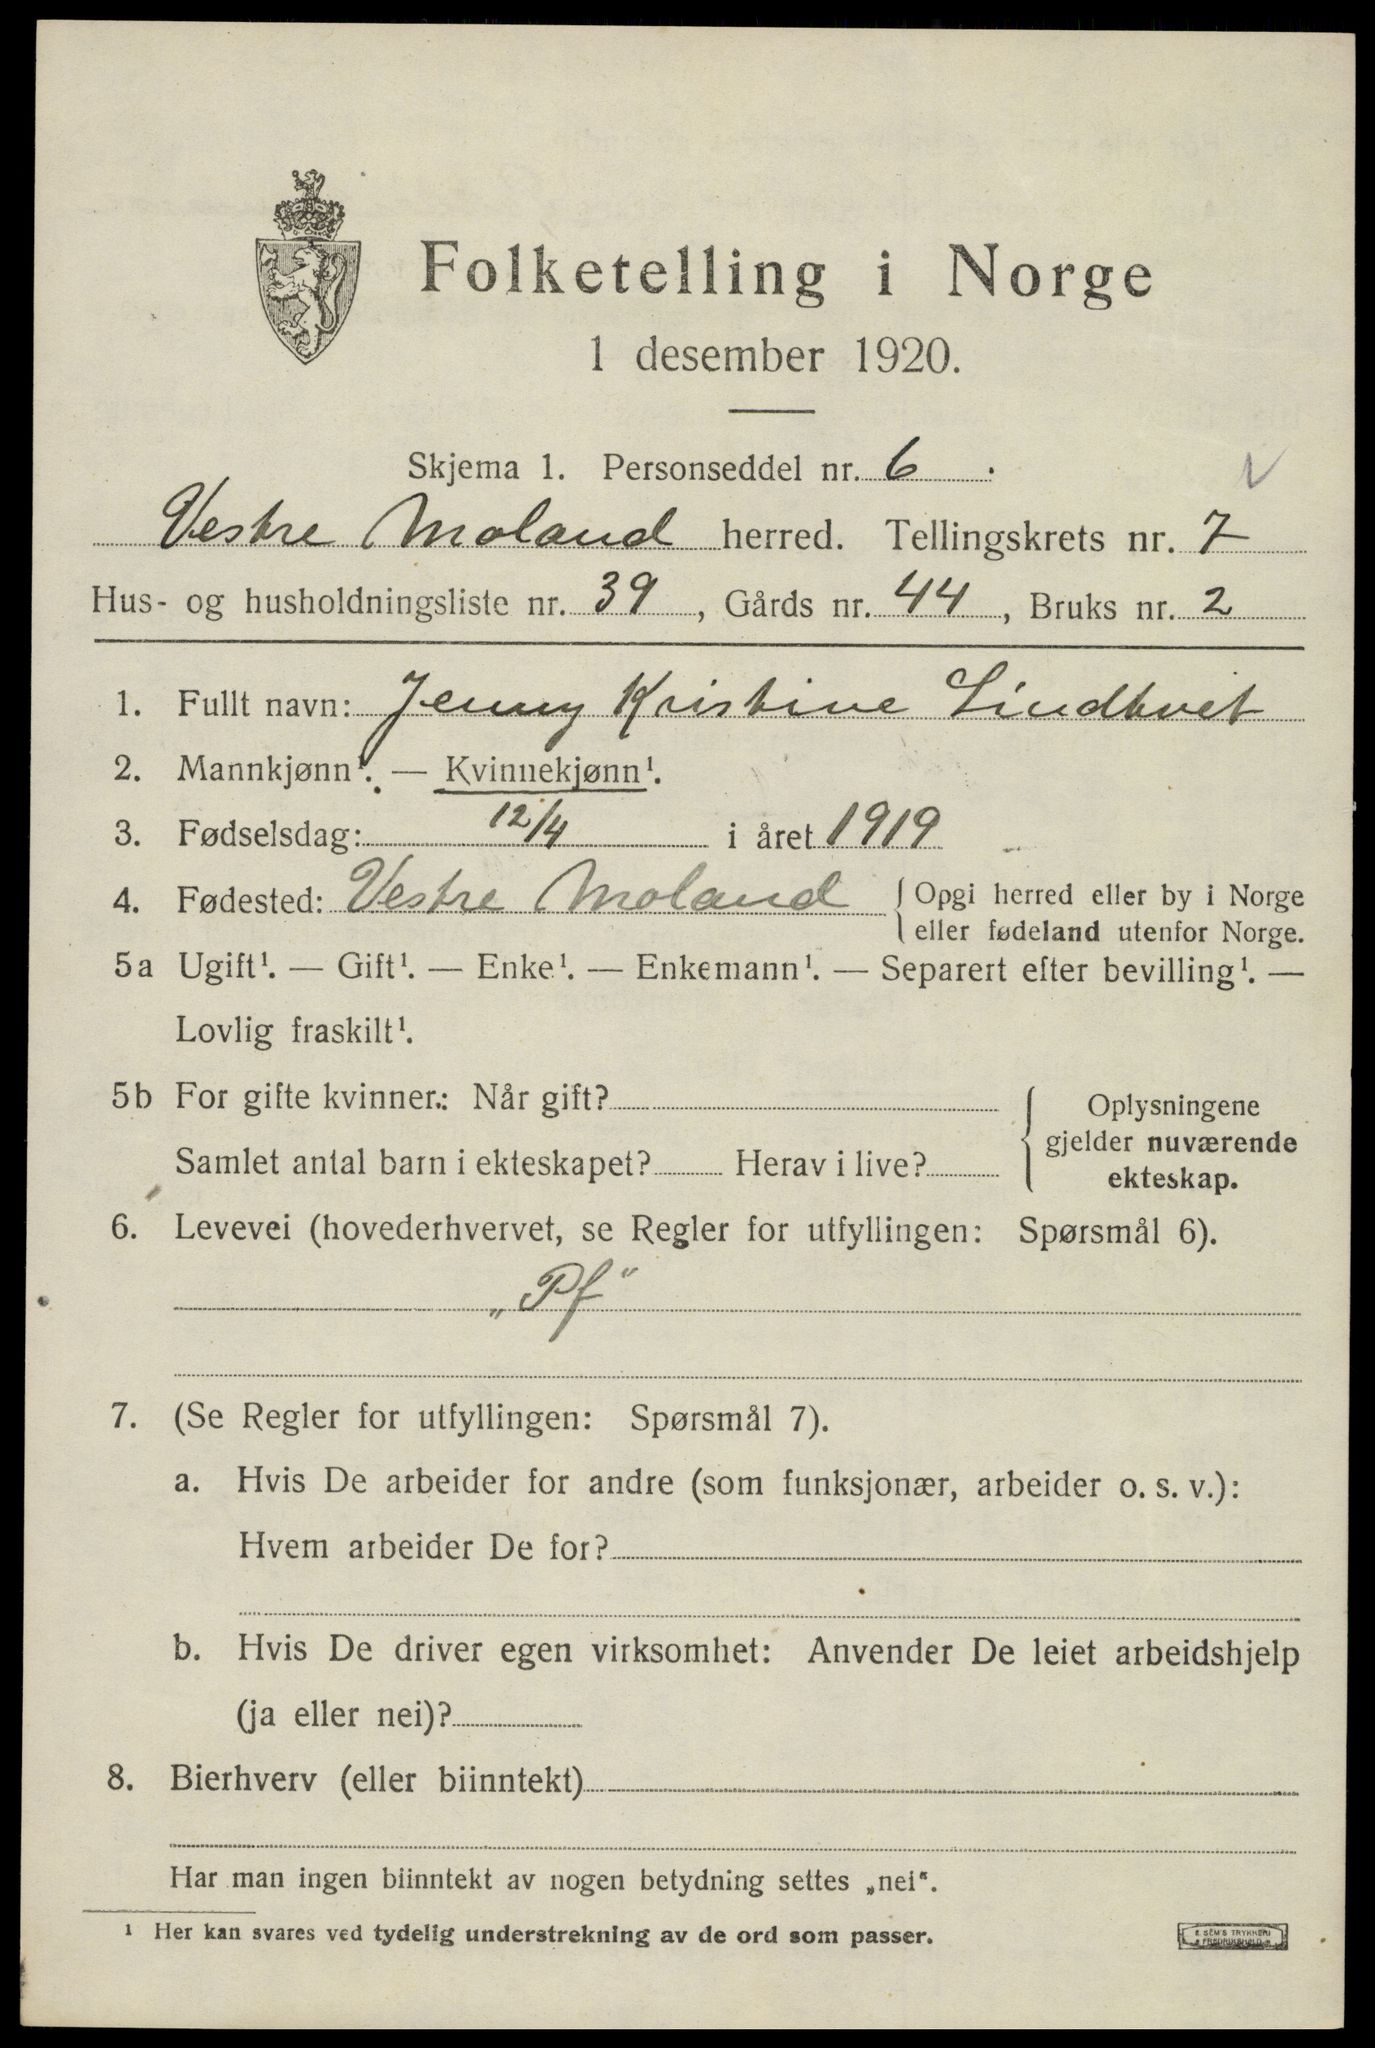 Folketelling i Norge
1 desember 1920.
Skjema 1. Personseddel nr. 6.
Vestre Moland herred. Tellingskrets nr. 7
Hus- og husholdningsliste nr. 39, Gårds nr. 44, Bruks nr. 2
1. Fullt navn: Jenny Kristine Lindtveit
2. Mannkjønn¹. — Kvinnekjønn¹.
3. Fødselsdag: 12/4 i året 1919
4. Fødested: Vestre Moland { Opgi herred eller by i Norge
eller fødeland utenfor Norge.
5a Ugift¹. — Gift¹. — Enke¹. — Enkemann¹. — Separert efter bevilling¹. —
Lovlig fraskilt¹.
5b For gifte kvinner: Når gift?
Samlet antal barn i ekteskapet? Herav i live?
Oplysningene
gjelder nuværende
ekteskap.
6. Levevei (hovederhvervet, se Regler for utfyllingen: Spørsmål 6).
„Pf“
7. (Se Regler for utfyllingen: Spørsmål 7).
a. Hvis De arbeider for andre (som funksjonær, arbeider o. s. v.):
Hvem arbeider De for?
b. Hvis De driver egen virksomhet: Anvender De leiet arbeidshjelp
(ja eller nei)?
8. Bierhverv (eller biinntekt)
Har man ingen biinntekt av nogen betydning settes „nei“.
¹ Her kan svares ved tydelig understrekning av de ord som passer.
E SEM'S TRYKKERI
FREDRIKSHALD